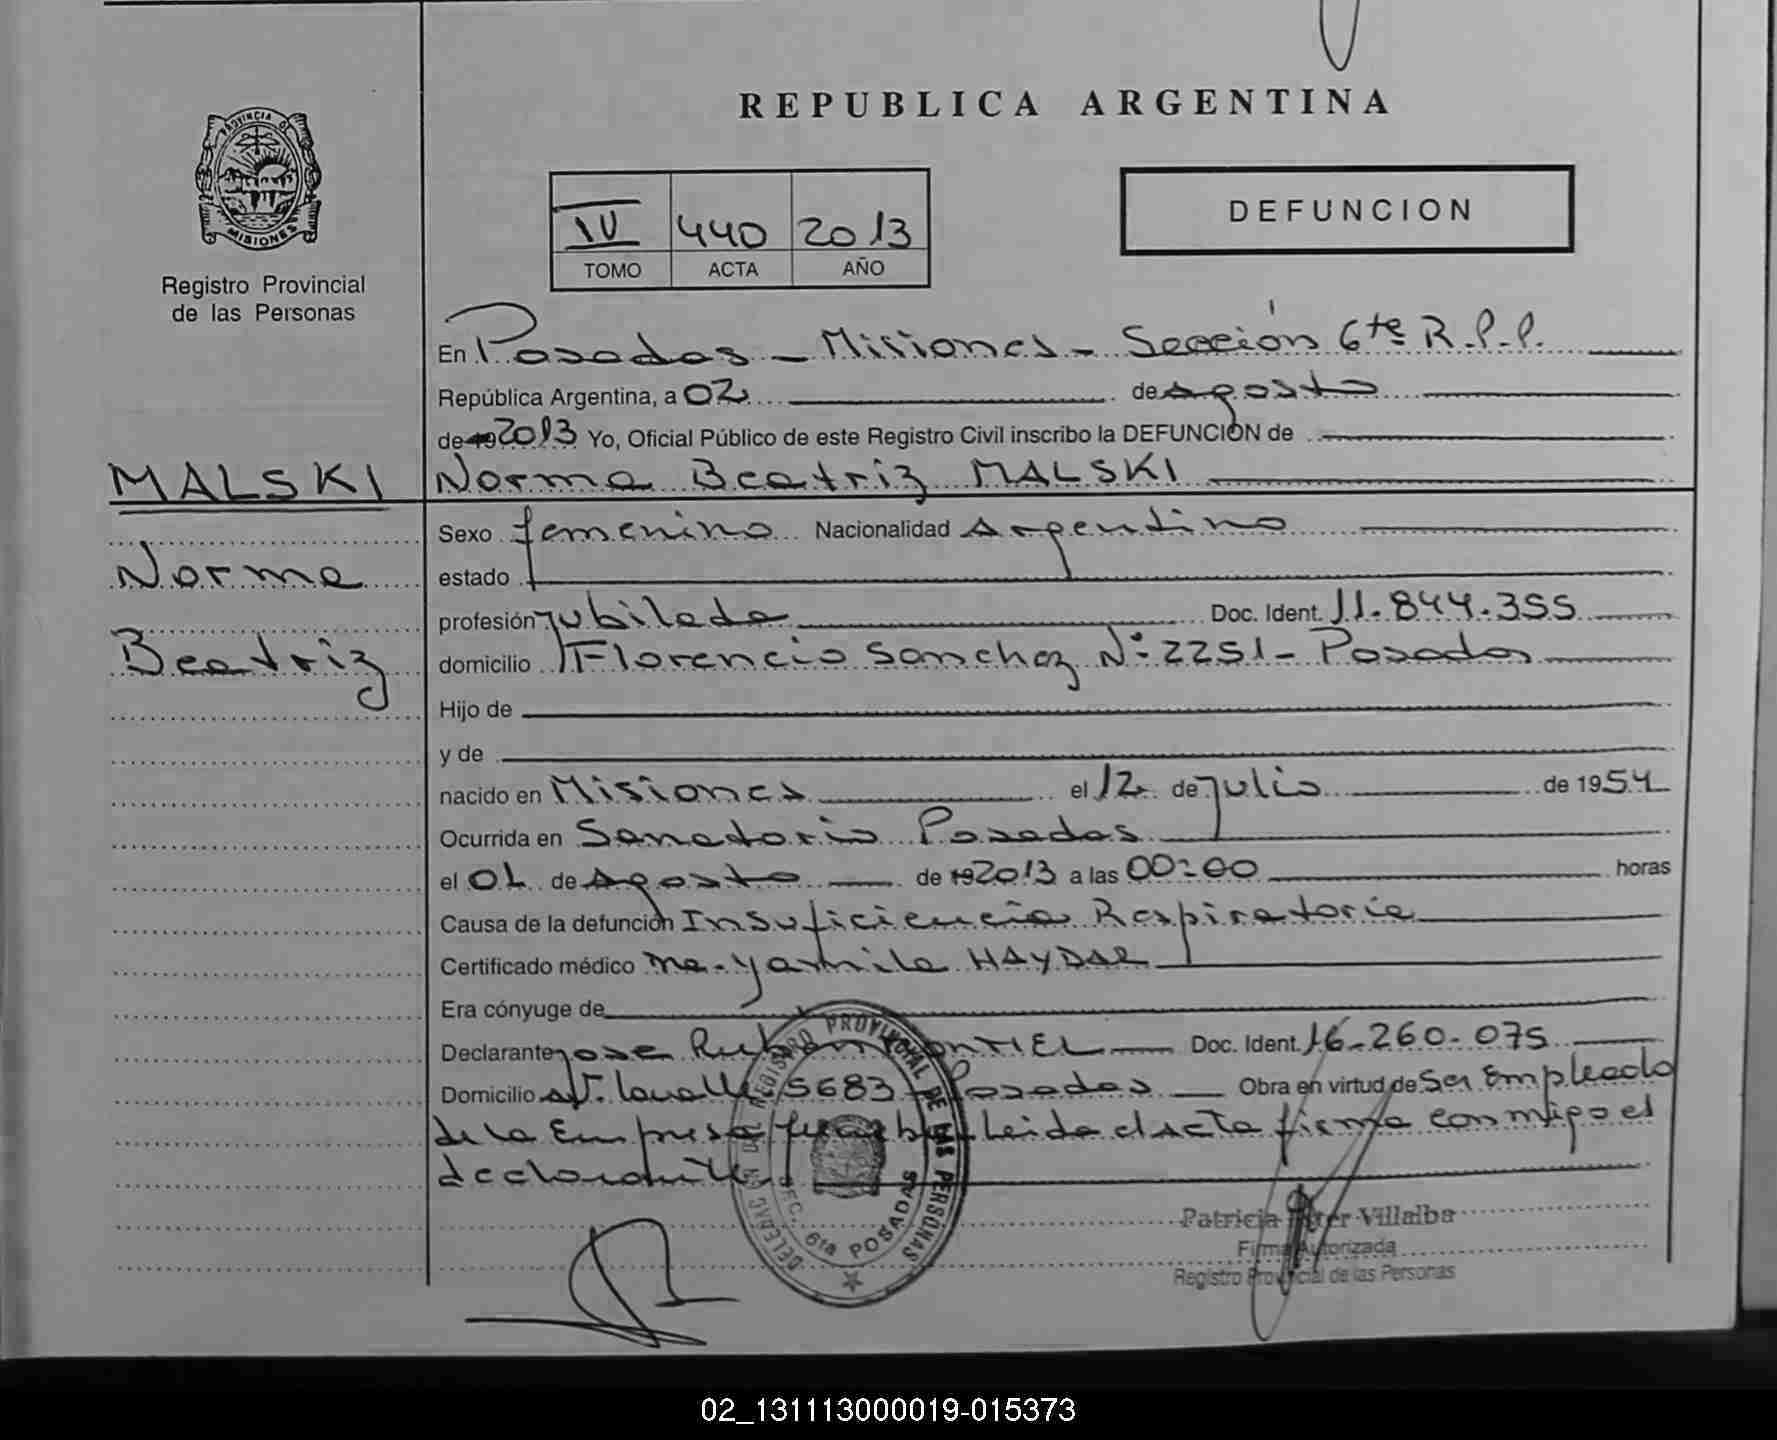 REPUBLICA ARGENTINA
PROVINCIA DE
MISIONES
Registro Provincial
de las Personas
IV 440 2013
TOMO ACTA AÑO
DEFUNCION
En Posadas - Misiones - Sección 6te R.P.P.
República Argentina, a 02 de Agosto
de 19 2013 Yo, Oficial Público de este Registro Civil inscribo la DEFUNCION de
MALSKI
Norma
Beatriz
Norma Beatriz MALSKI
Sexo femenino Nacionalidad Argentina
estado
profesión Jubilada Doc. Ident. 11.844.355
domicilio Florencio Sanchez N° 2251 - Posadas
Hijo de
y de
nacido en Misiones el 12 de Julio de 1954
Ocurrida en Sanatorio Posadas
el 01 de Agosto de 19 2013 a las 00:00 horas
Causa de la defunción Insuficiencia Respiratoria
Certificado médico Ma. Yamila HAYDAR
Era cónyuge de
Declarante Jose Ruben MONTIEL Doc. Ident. 16.260.075
Domicilio Av. Lavalle 5683 Posadas Obra en virtud de Ser Empleado
de la Empresa funebre Leida el acta firma conmigo el
declarante
DELEGACION DEL REGISTRO PROVINCIAL DE LAS PERSONAS
SEC. 6ta POSADAS
Patricia Villalba
Firma Autorizada
Registro Provincial de las Personas
02_131113000019-015373